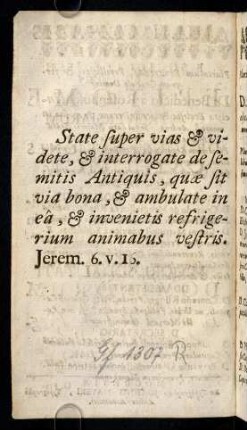 State super vias & vi-
dete, & interrogate de se-
mitis Antiquis, quæ sit
via bona, & ambulate in
eâ, & invenietis refrige-
rium animabus vestris.
Jerem. 6. v. 16.
Gf 1307 R